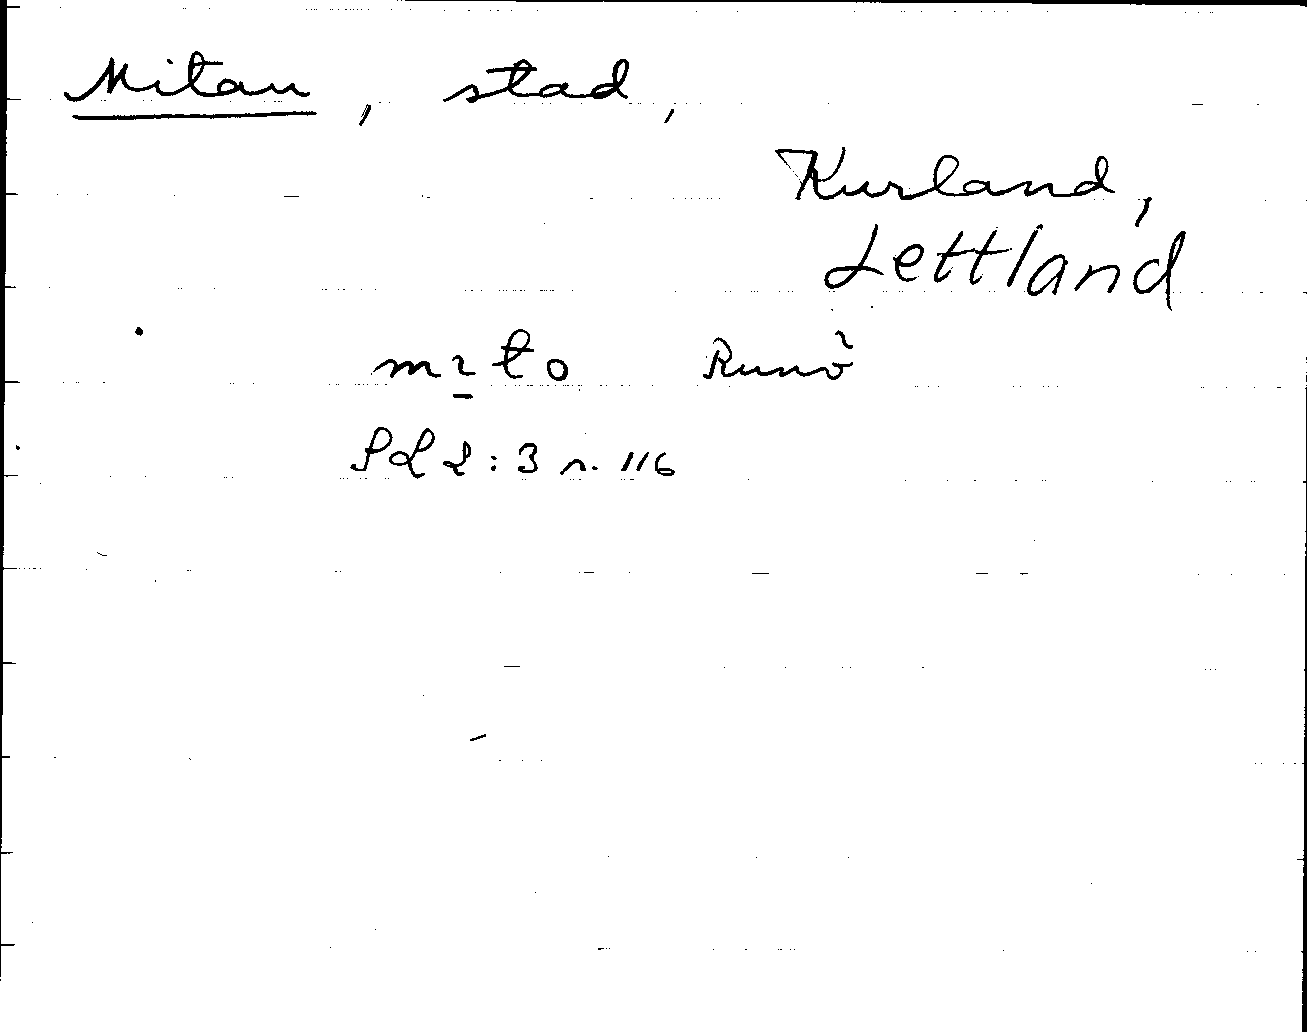 Mitau, stad,
Kurland,
Lettland
mɿ̱to Runö
SL 2:3 s. 116